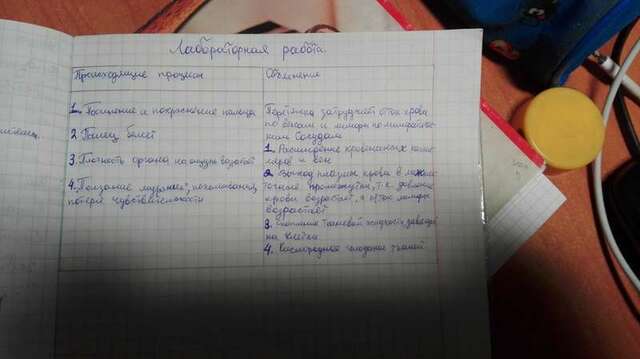 Лабораторная работа.
Происходящие процессы
Объяснение
1. Посинение и покраснение пальца
2. Палец белеет
3. Плотность органа на ощупь
4. Ползание "мурашек", покалывание,
потеря чувствительности
Перетяжка затрудняет отток крови
по венам и лимфы по лимфатичес-
ким сосудам
1. Расширение кровеносных капил-
ляров и вен
2. Выход плазмы крови в межкле-
точные промежутки, т.к. давление
крови возрастает, а отток лимфы
возрастает
3. тканевой жидкости
на клетки
4. Кислородное голодание тканей